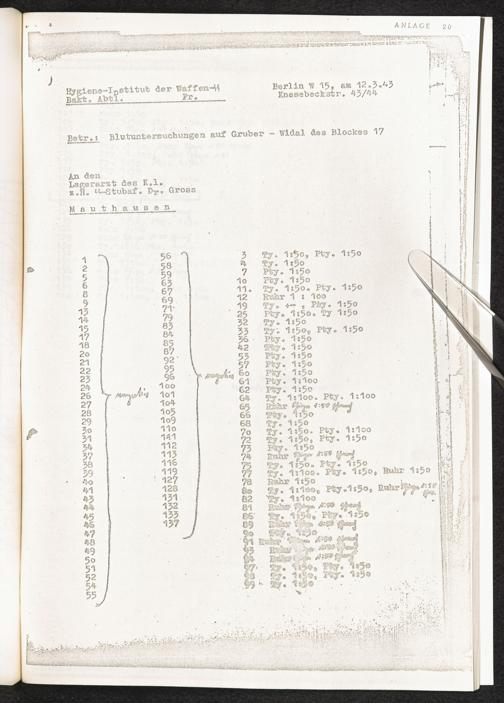 ANLAGE 20
Hygiene-Institut der Waffen-SS
Bakt. Abtl. Fr.
Berlin W 15, am 12.3.43
Knesebeckstr. 43/44
Betr.: Blutuntersuchungen auf Gruber - Widal des Blockes 17
An den
Lagerarzt des K.l.
z.H. SS-Stubaf. Dr. Gross
Mauthausen
1
2
5
6
8
9
13
14
15
17
18
20
21
22
23
24
26
27
28
29
30
31
34
37
38
39
40
41
43
44
45
46
47
48
49
50
51
52
54
55
negativ
56
58
59
63
67
69
71
79
83
84
85
87
92
95
96
100
101
104
105
109
110
141
112
113
116
119
127
128
131
132
133
137
negativ
3 Ty. 1:50, Pty. 1:50
4 Ty. 1:50
7 Pty. 1:50
10 Pty. 1:50
11. Ty. 1:50. Pty. 1:50
12 Ruhr 1 : 100
19 Ty. Pty. 1:50
25 Pty. 1:50. Ty 1:50
32 Ty. 1:50
33 Ty. 1:50, Pty. 1:50
36 Pty. 1:50
42 Pty. 1:50
53 Pty. 1:50
57 Pty. 1:50
60 Pty. 1:50
61 Pty. 1:100
62 Pty. 1:50
64 Ty. 1:100. Pty. 1:100
65 Ruhr
66 Pty. 1:50
68 Ty. 1:50
70 Ty. 1:50. Pty. 1:100
72 Ty. 1:50, Pty. 1:50
73 Pty. 1:50
74 Ruhr
75 Ty. 1:50. Pty. 1:50
77 Ty. 1:100. Pty. 1:50, Ruhr 1:50
78 Ruhr 1:50
80 Ty. 1:100, Pty. 1:50, Ruhr
82 Ty. 1:100
81 Ruhr
86 Ty. 1:50, Pty. 1:50
89 Ruhr
90 Ty. 1:50
91 Ruhr
93 Ruhr
94 Ruhr
97 Ty. 1:50, Pty. 1:50
98 Ty. 1:50, Pty. 1:50
99 Ty. 1:50